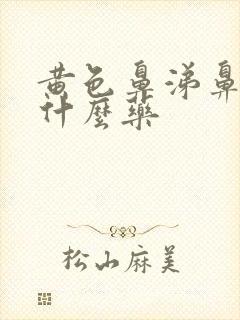 黄色鼻涕鼻
什麼藥
松山麻美